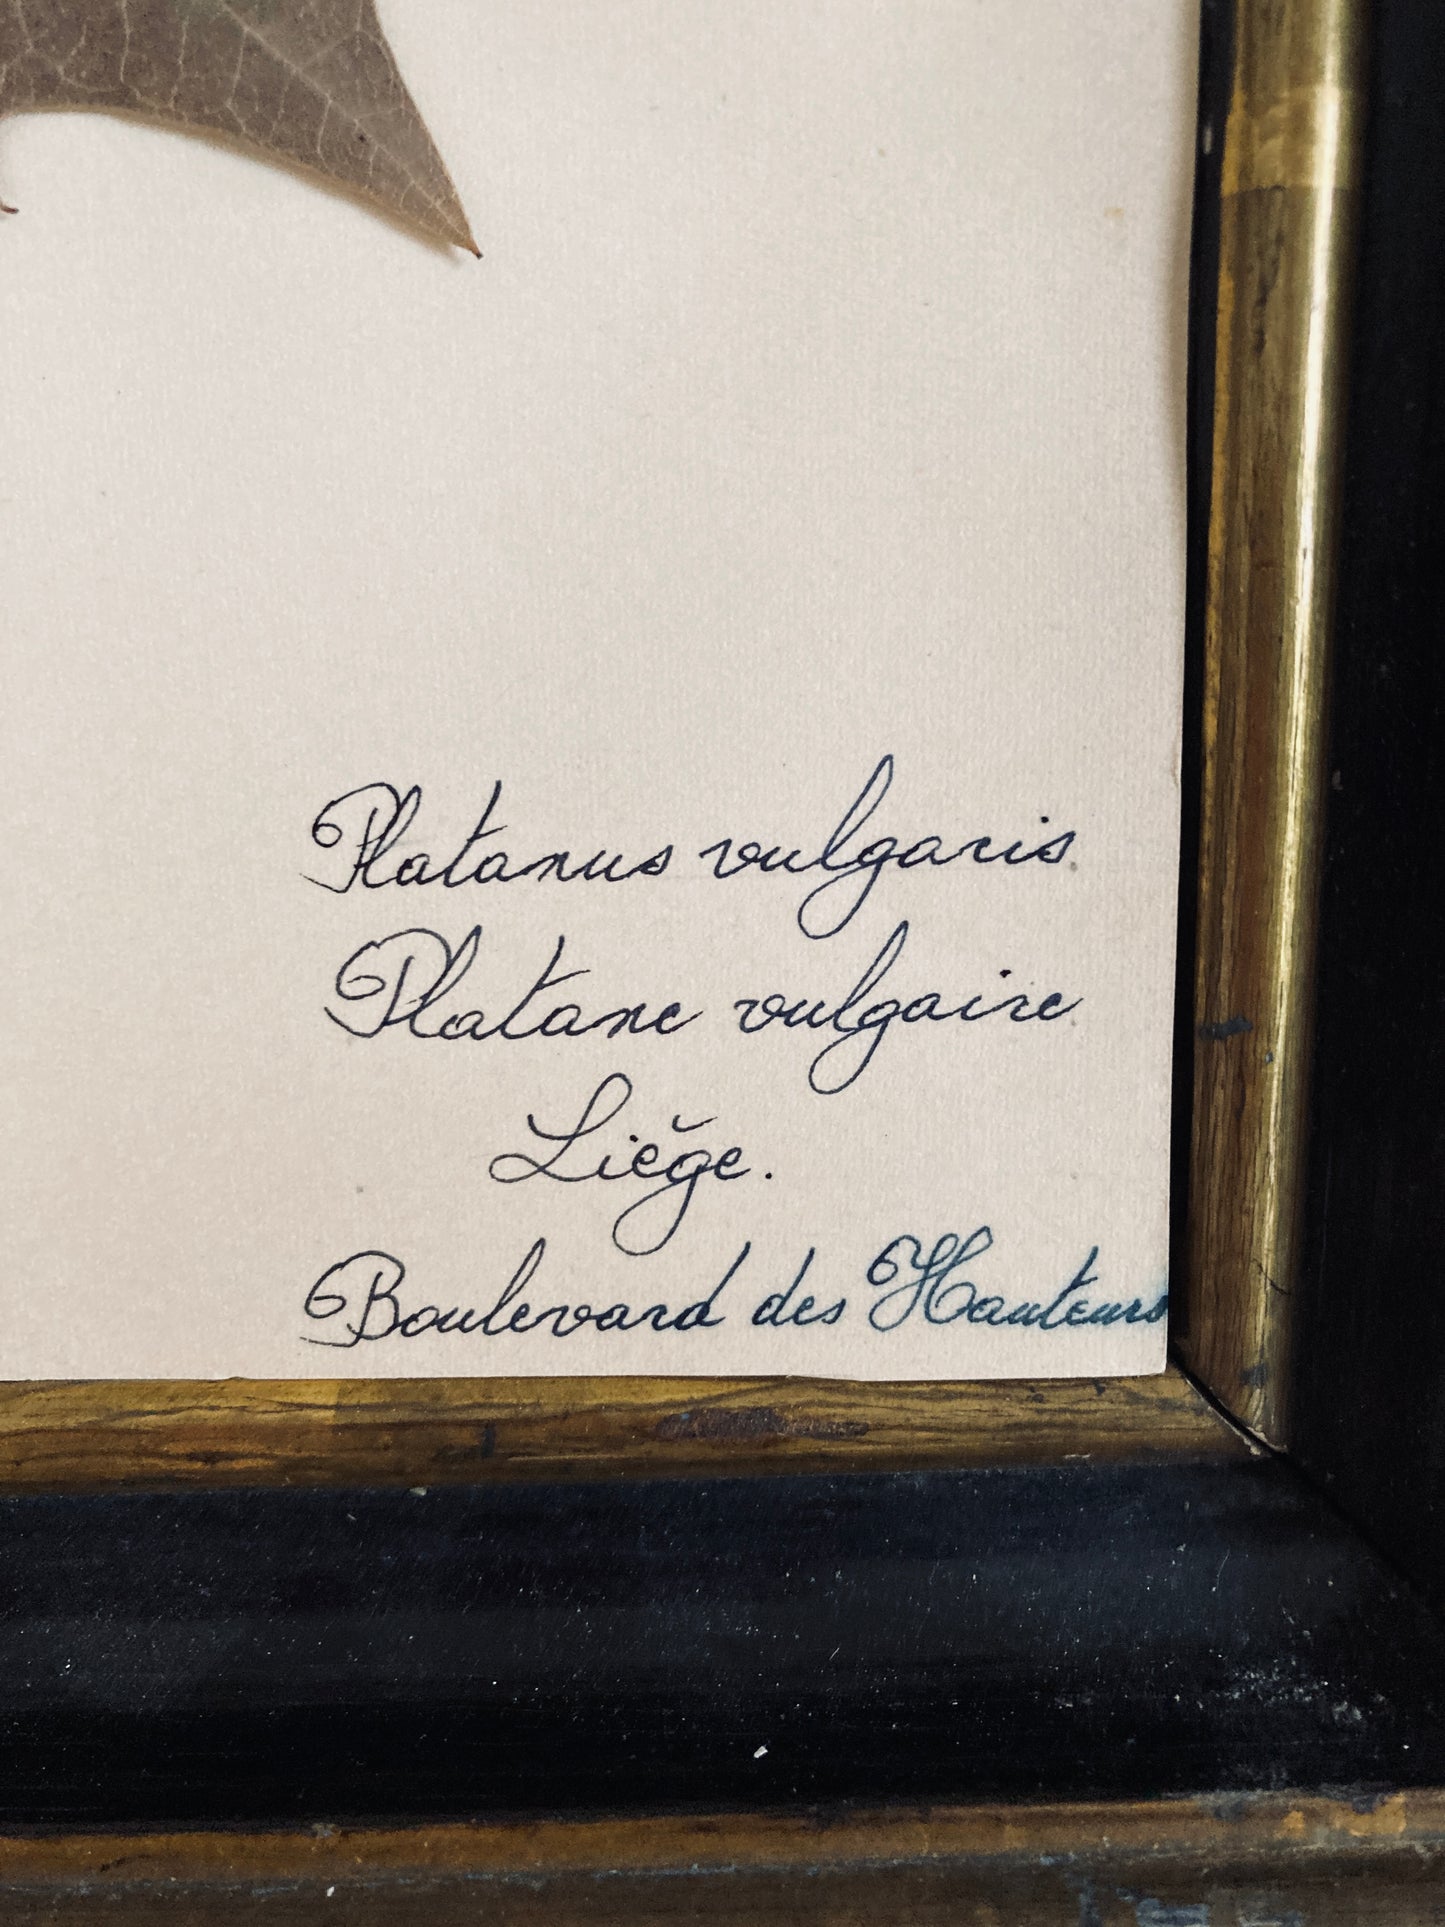 Platanus vulgaris
Platane vulgaire
Liège.
Boulevard des Hauteurs